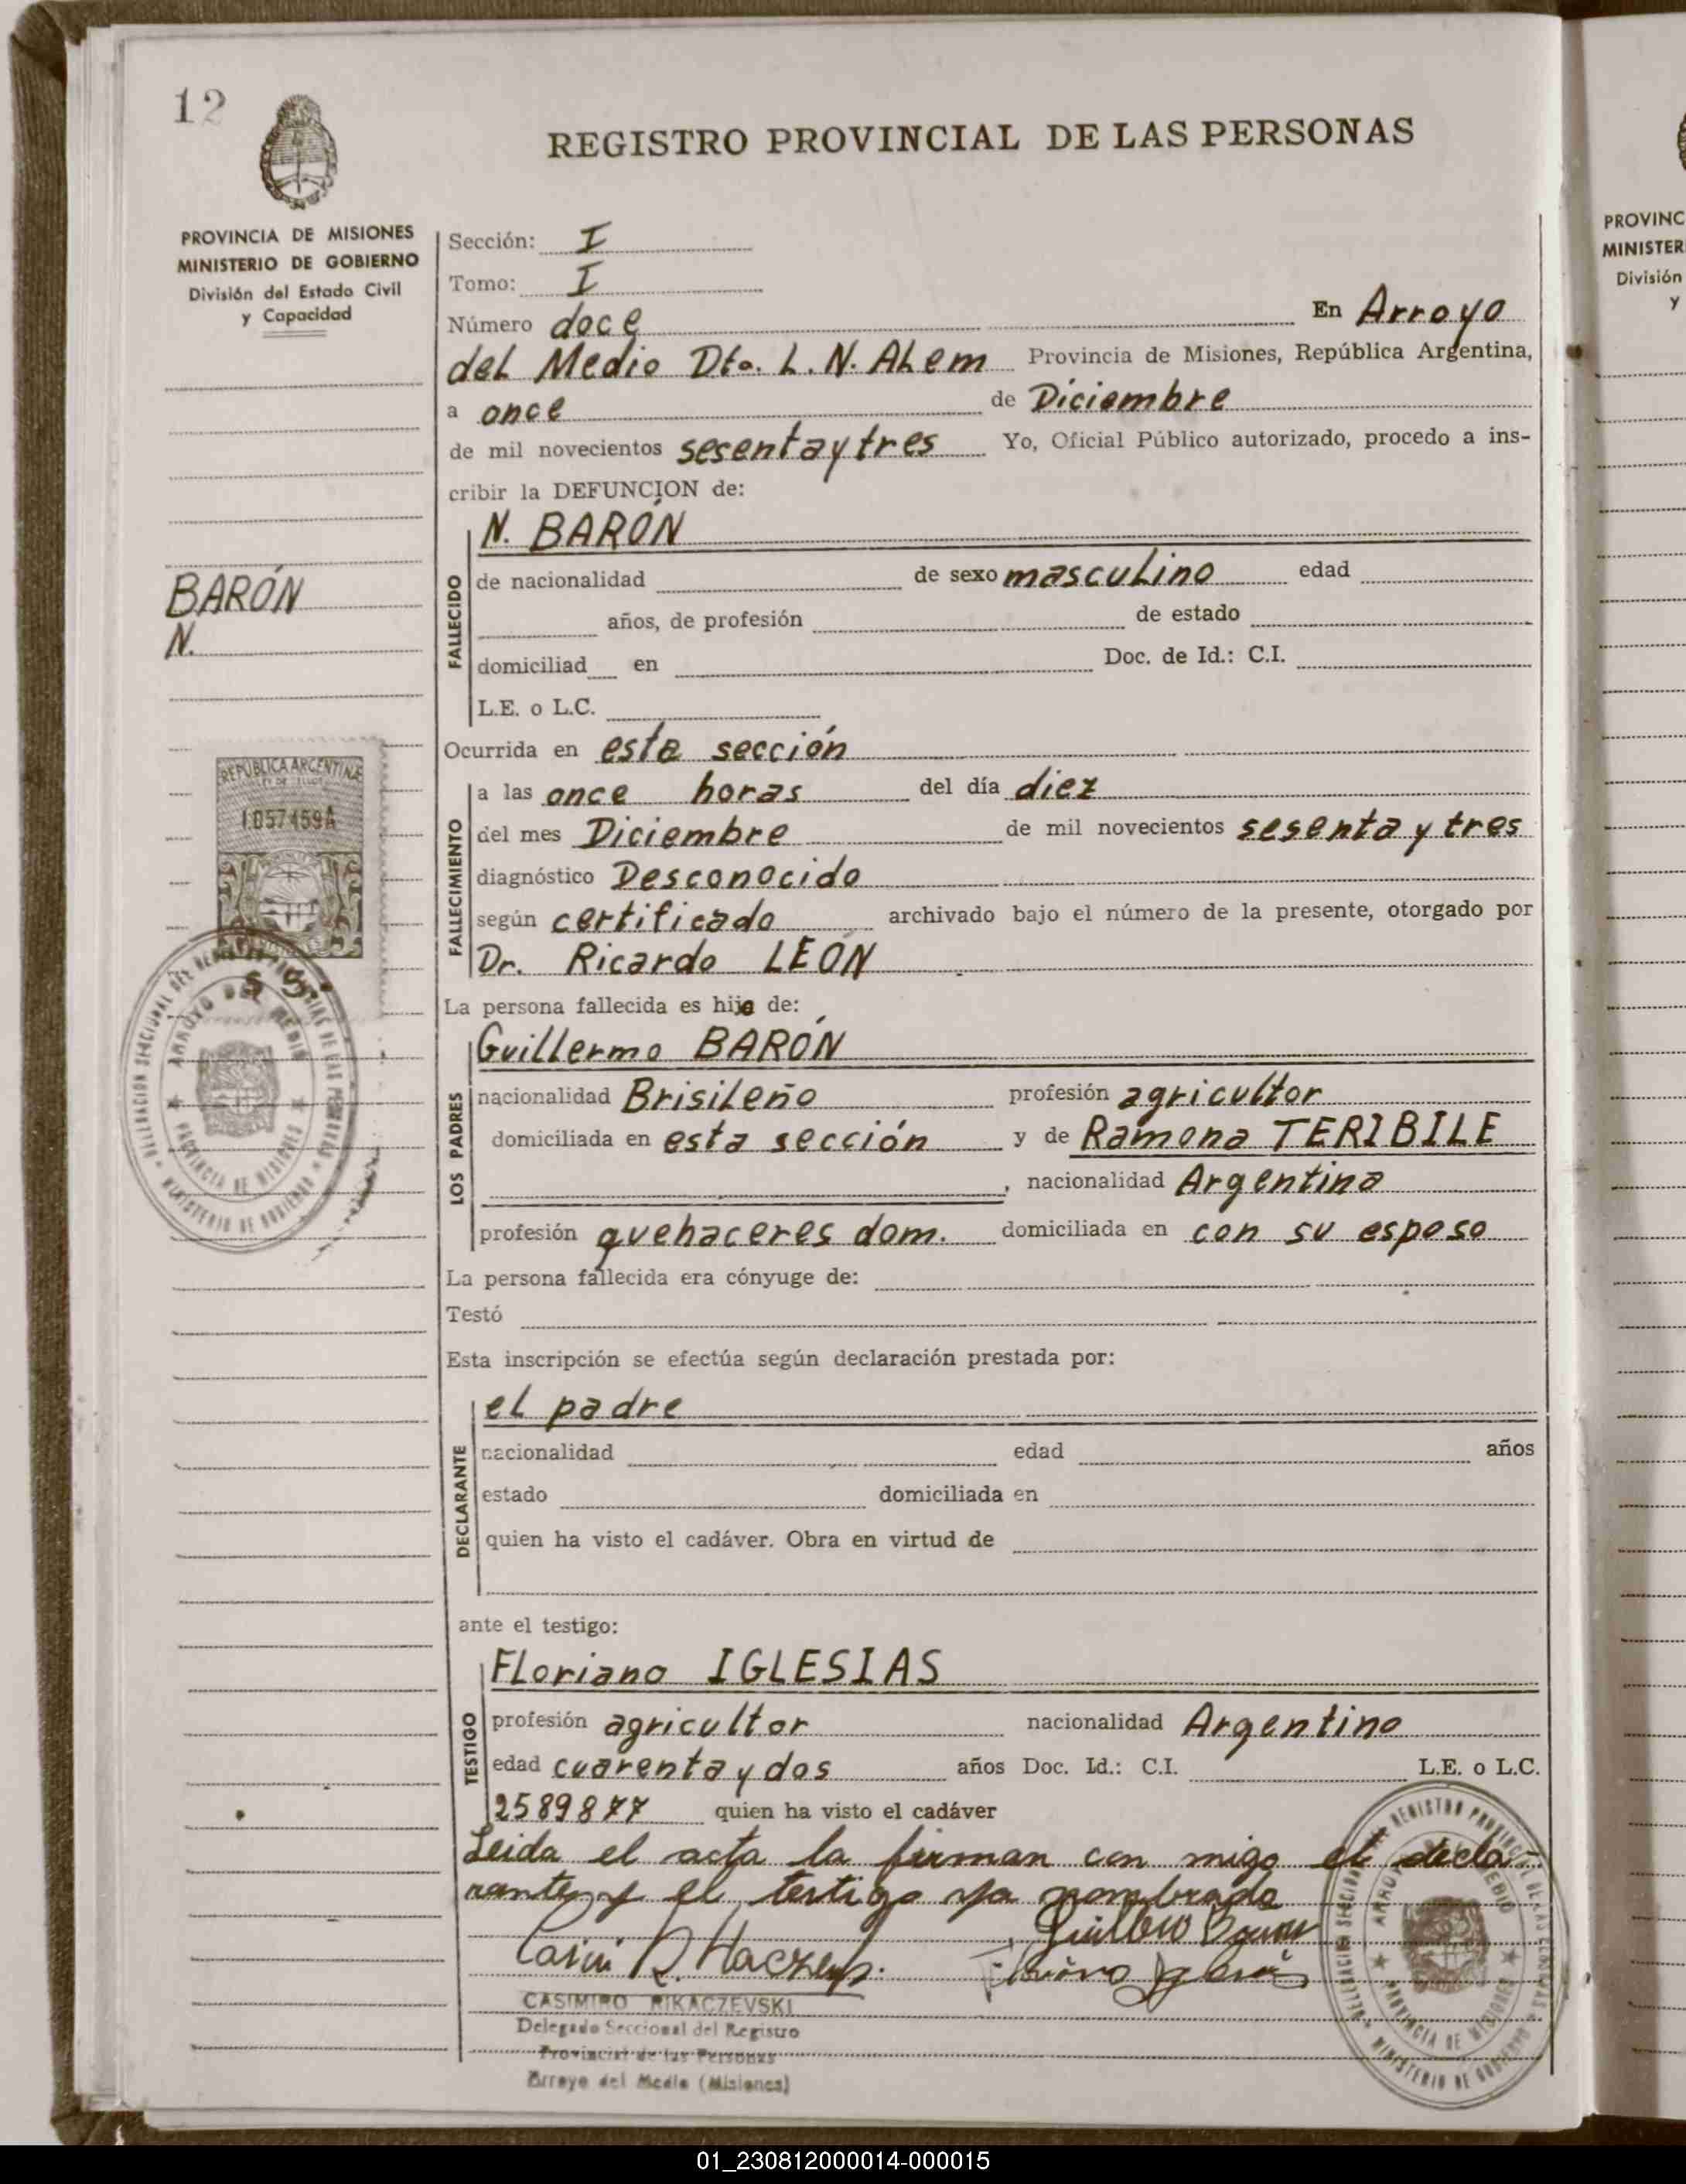 12
REGISTRO PROVINCIAL DE LAS PERSONAS
PROVINCIA DE MISIONES
MINISTERIO DE GOBIERNO
División del Estado Civil
y Capacidad
Sección: I
Tomo: I
Número doce En Arroyo
del Medio Dto. L. N. ALem Provincia de Misiones, República Argentina,
a once de Diciembre
de mil novecientos sesenta y tres Yo, Oficial Público autorizado, procedo a ins-
cribir la DEFUNCION de:
N. BARÓN
BARÓN
N.
FALLECIDO
de nacionalidad de sexo mascuLino edad
años, de profesión de estado
domiciliad en Doc. de Id.: C.I.
L.E. o L.C.
Ocurrida en esta sección
REPUBLICA ARGENTINA
1.057.159A
FALLECIMIENTO
a las once horas del día diez
del mes Diciembre de mil novecientos sesenta y tres
diagnóstico Desconocido
según certificado archivado bajo el número de la presente, otorgado por
Dr. Ricardo LEÓN
La persona fallecida es hijo de:
LOS PADRES
Guillermo BARÓN
nacionalidad BrisiLeño profesión agricultor
domiciliada en esta sección y de Ramona TERIBILE
, nacionalidad Argentina
profesión quehaceres dom. domiciliada en con su esposo
La persona fallecida era cónyuge de:
Testó
Esta inscripción se efectúa según declaración prestada por:
DECLARANTE
eL padre
nacionalidad edad años
estado domiciliada en
quien ha visto el cadáver. Obra en virtud de
ante el testigo:
TESTIGO
FLoriano IGLESIAS
profesión agricultor nacionalidad Argentino
edad cuarenta y dos años Doc. Id.: C.I. L.E. o L.C.
2589877 quien ha visto el cadáver
Leida el acta la firman con migo el decla-
rante y el testigo ya nombrado
CASIMIRO RIKACZEVSKI
Delegado Seccional del Registro
Provincial de las Personas
Arroyo del Medio (Misiones)
DELEGACION SECCIONAL DEL REGISTRO PROVINCIAL DE LAS PERSONAS
ARROYO DEL MEDIO
PROVINCIA DE MISIONES
MINISTERIO DE GOBIERNO
PROVINC
MINISTER
División
y
01_230812000014-000015